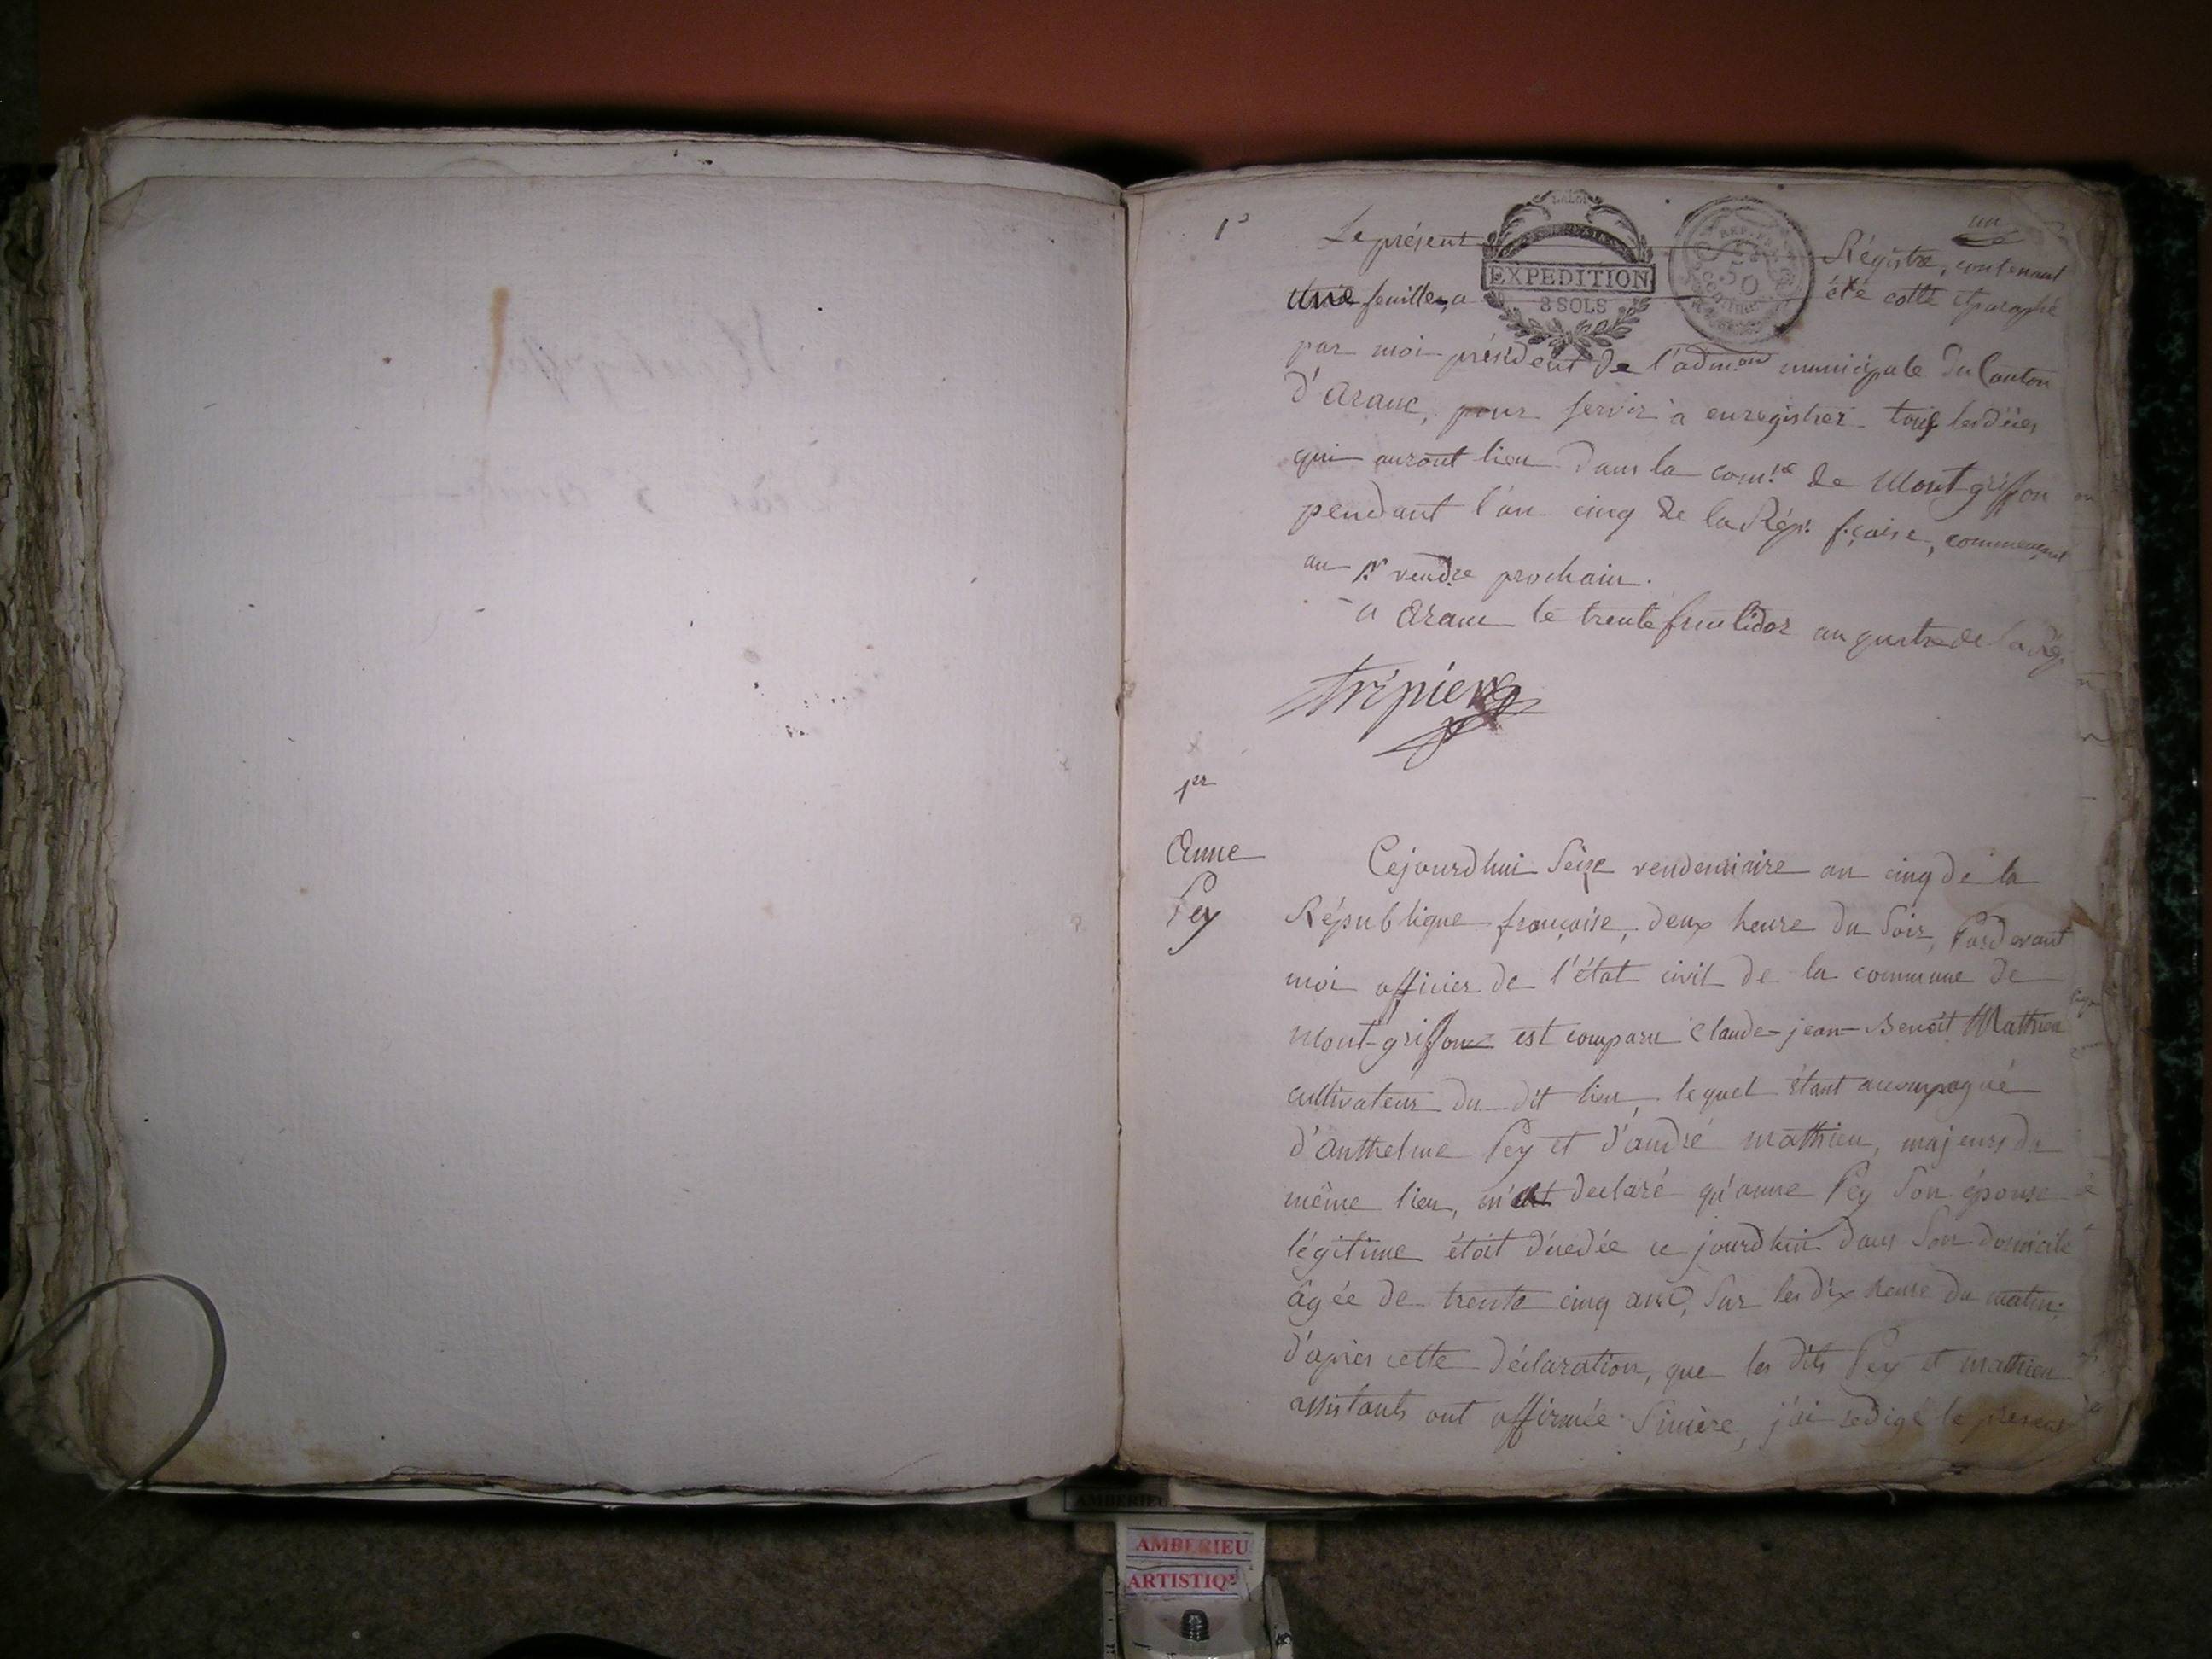 1°
un
Le présent Régistre, contenant
LA LOI
EXPEDITION
8 SOLS
REP. FRA.
50
centimes
une feuille, a été cotté et paraphé
par moi président de l'adm.on municipale du Canton
d'Aranc, pour servir à enregistrer tous les décès
qui auront lieu dans la com.ne de Montgriffon
pendant l'an cinq de la Rép. f.çaise, commençant
au p.r vend.re prochain.
a Aranc le trente fructidor an quatre de la Rép.
Tripier
1er
Anne
Pey
Cejourdhui seize vendemiaire an cinq de la
République françoise, deux heure du soir, Pardevant
moi officier de l'état civil de la commune de
Mont-griffon est comparu Claude-jean-Benoit Mathieu
cultivateur du dit lieu, lequel étant accompagné
d'Anthelme Pey et d'andré mathieu, majeurs du
même lieu, m'a declaré qu'anne Pey son épouse
légitime étoit décedée ce jourdhui dans son domicile
âgée de trente cinq ans, sur les dix heure du matin.
d'après cette déclaration, que les dits Pey et mathieu
assistants ont affirmée sincère, j'ai redigé le present
AMBERIEU
AMBERIEU
ARTISTIQ